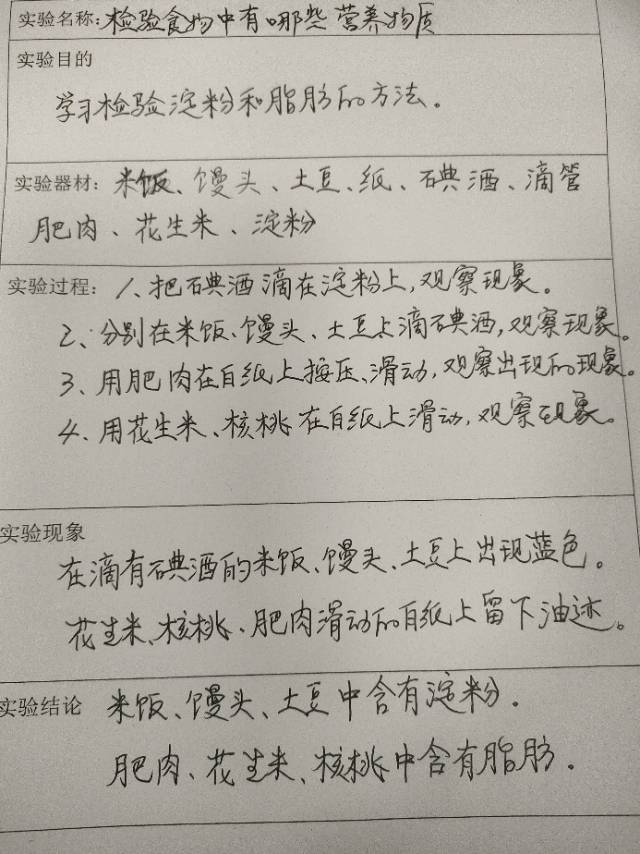 实验名称:检验食物中有哪些营养物质
实验目的
学习检验淀粉和脂肪的方法。
实验器材:米饭、馒头、土豆、纸、碘酒、滴管
肥肉、花生米、淀粉
实验过程:1、把碘酒滴在淀粉上,观察现象。
2、分别在米饭、馒头、土豆上滴碘酒,观察现象。
3、用肥肉在白纸上按压、滑动,观察出现的现象。
4、用花生米、核桃在白纸上滑动,观察现象。
实验现象
在滴有碘酒的米饭、馒头、土豆上出现蓝色。
花生米、核桃、肥肉滑动的白纸上留下油迹。
实验结论 米饭、馒头、土豆中含有淀粉.
肥肉、花生米、核桃中含有脂肪.